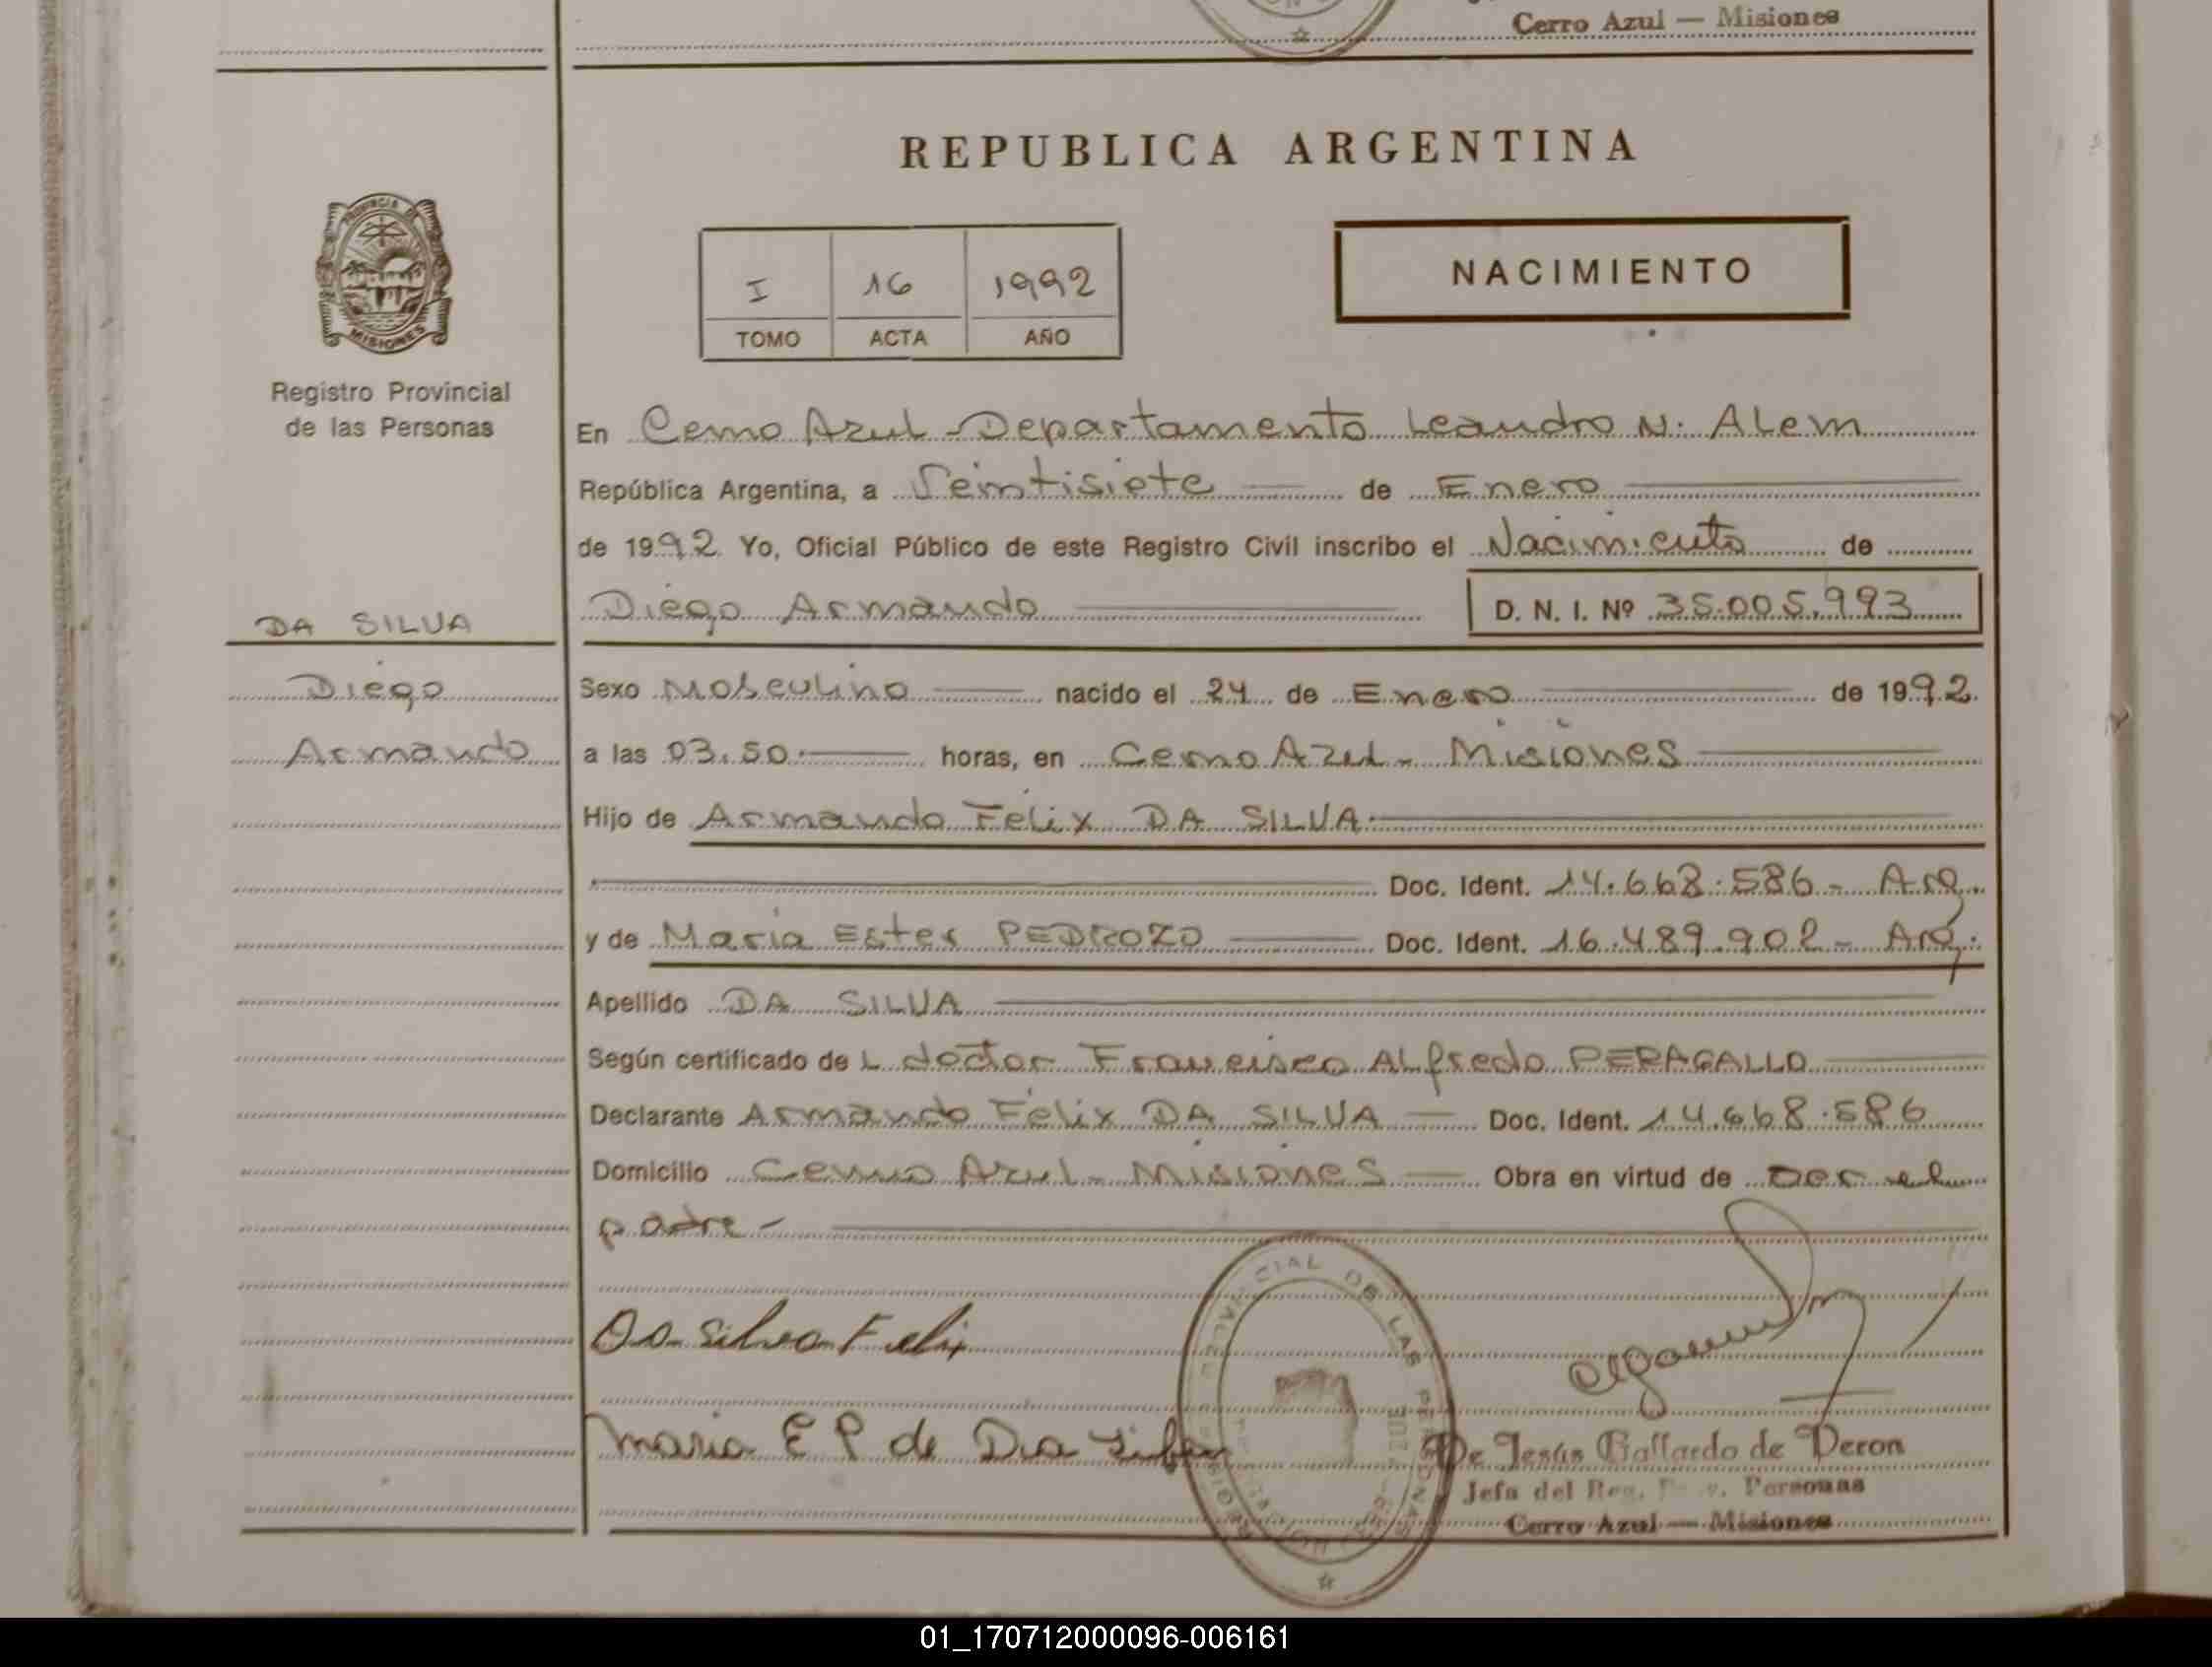 Cerro Azul — Misiones
REPUBLICA ARGENTINA
PROVINCIA DE MISIONES
Registro Provincial
de las Personas
I 16 1992
TOMO ACTA AÑO
NACIMIENTO
En Cerro Azul - Departamento Leandro N. Alem
República Argentina, a Veintisiete de Enero
de 1992 Yo, Oficial Público de este Registro Civil inscribo el Nacimiento de
Diego Armando D. N. I. Nº 35.005.993
DA SILVA
Diego
Armando
Sexo Masculino nacido el 24 de Enero de 1992.
a las 03.50. horas, en Cerro Azul - Misiones
Hijo de Armando Félix DA SILVA.
Doc. Ident. 14.668.586 - Arg.
y de María Ester PEDROZO Doc. Ident. 16.489.902 - Arg.
Apellido DA SILVA
Según certificado de L doctor Francisco Alfredo PERAGALLO
Declarante Armando Félix DA SILVA — Doc. Ident. 14.668.586
Domicilio Cerro Azul - Misiones — Obra en virtud de ser el
padre -
Da Silva Felix
Maria E P de Da Silva
De Jesús Gallardo de Peron
Jefa del Reg. Personas
Cerro Azul — Misiones
01_170712000096-006161